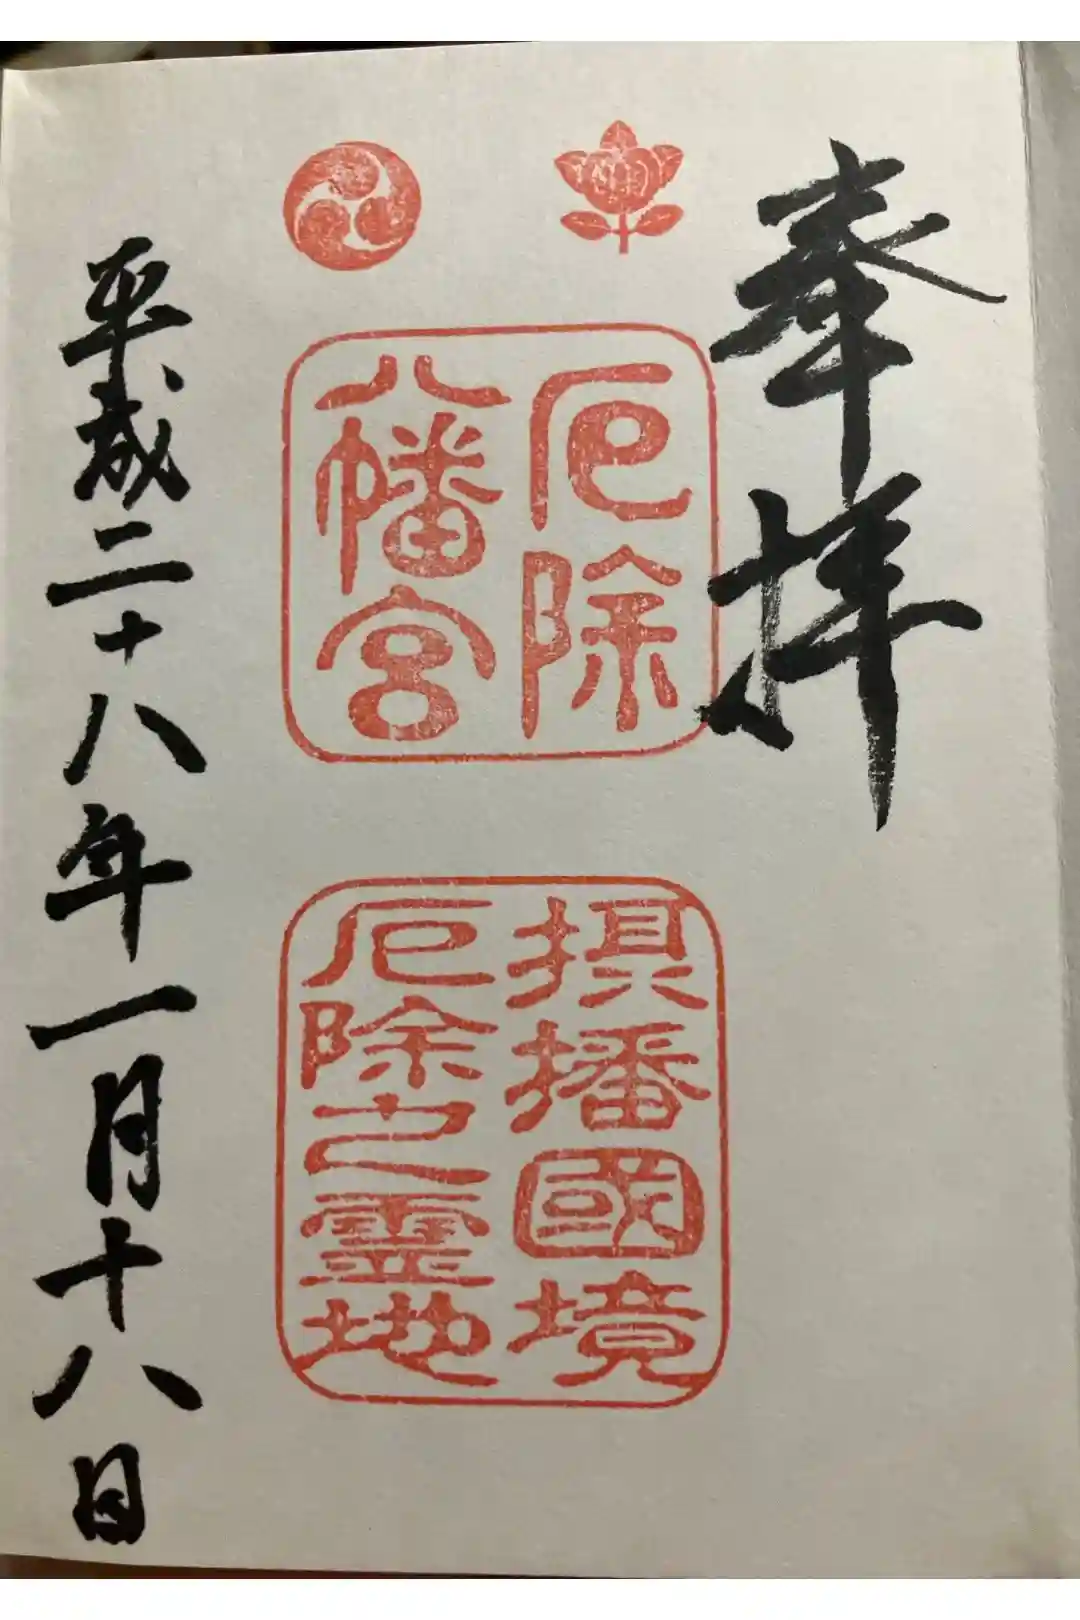 奉拝
厄除
八幡宮
摂播國境
厄除之霊地
平成二十八年一月十八日